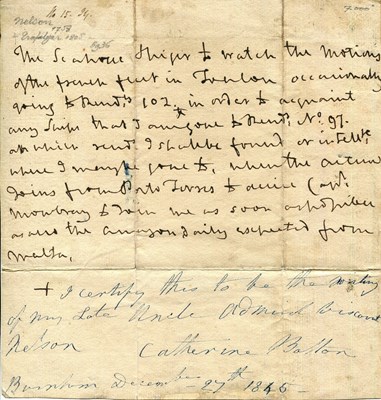 No 15. 
7000
Nelson
1758
+ Trafalgar 1805
The Seahorse Ships to watch the Motions
of the french fleet in Toulon occasionally
going to Rends. 102. in order to acquaint
any Ships that I am gone to Rends. No. 97.
at which rends. I shall be found or intelle.
where I may be gone to, when the active
Joins from Porto Torres to desire Capt.
Mowbray to Join me as soon as possible
as also the amazon daily expected from
malta.
+ I certify this to be the writing
of my Late Uncle Admiral Viscount
Nelson Catherine Bolton
Burnham December 27th 1845